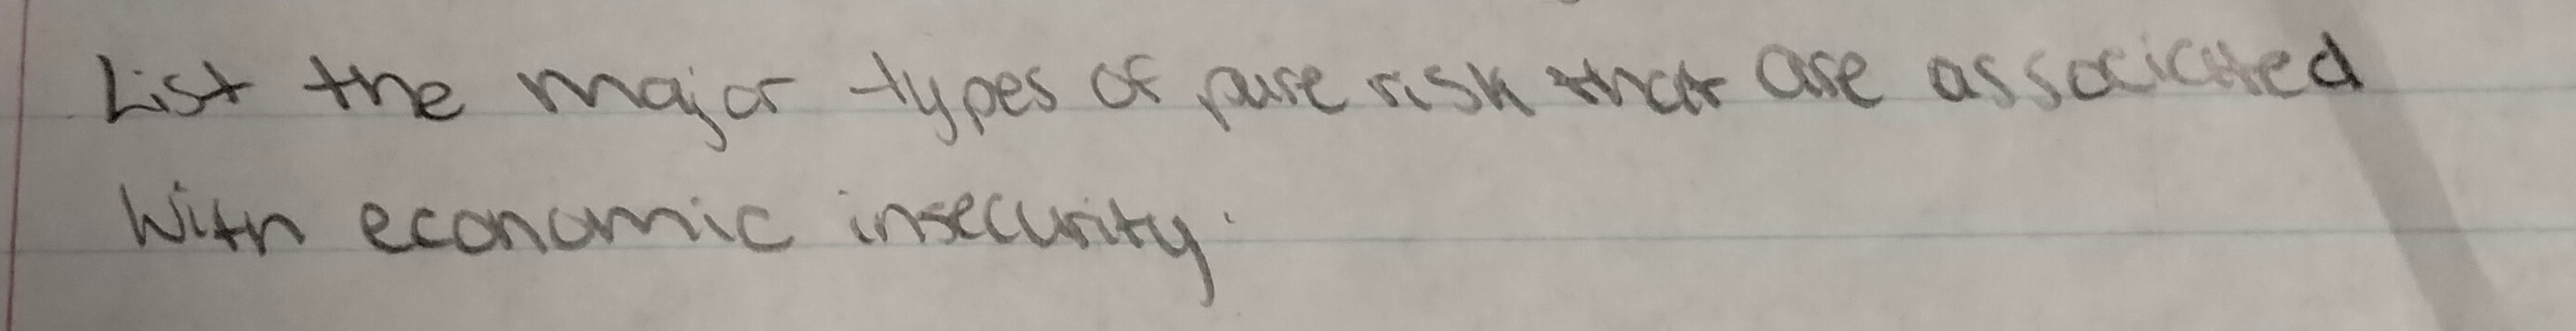 List the major types of pure risk that are associated
With economic insecurity.